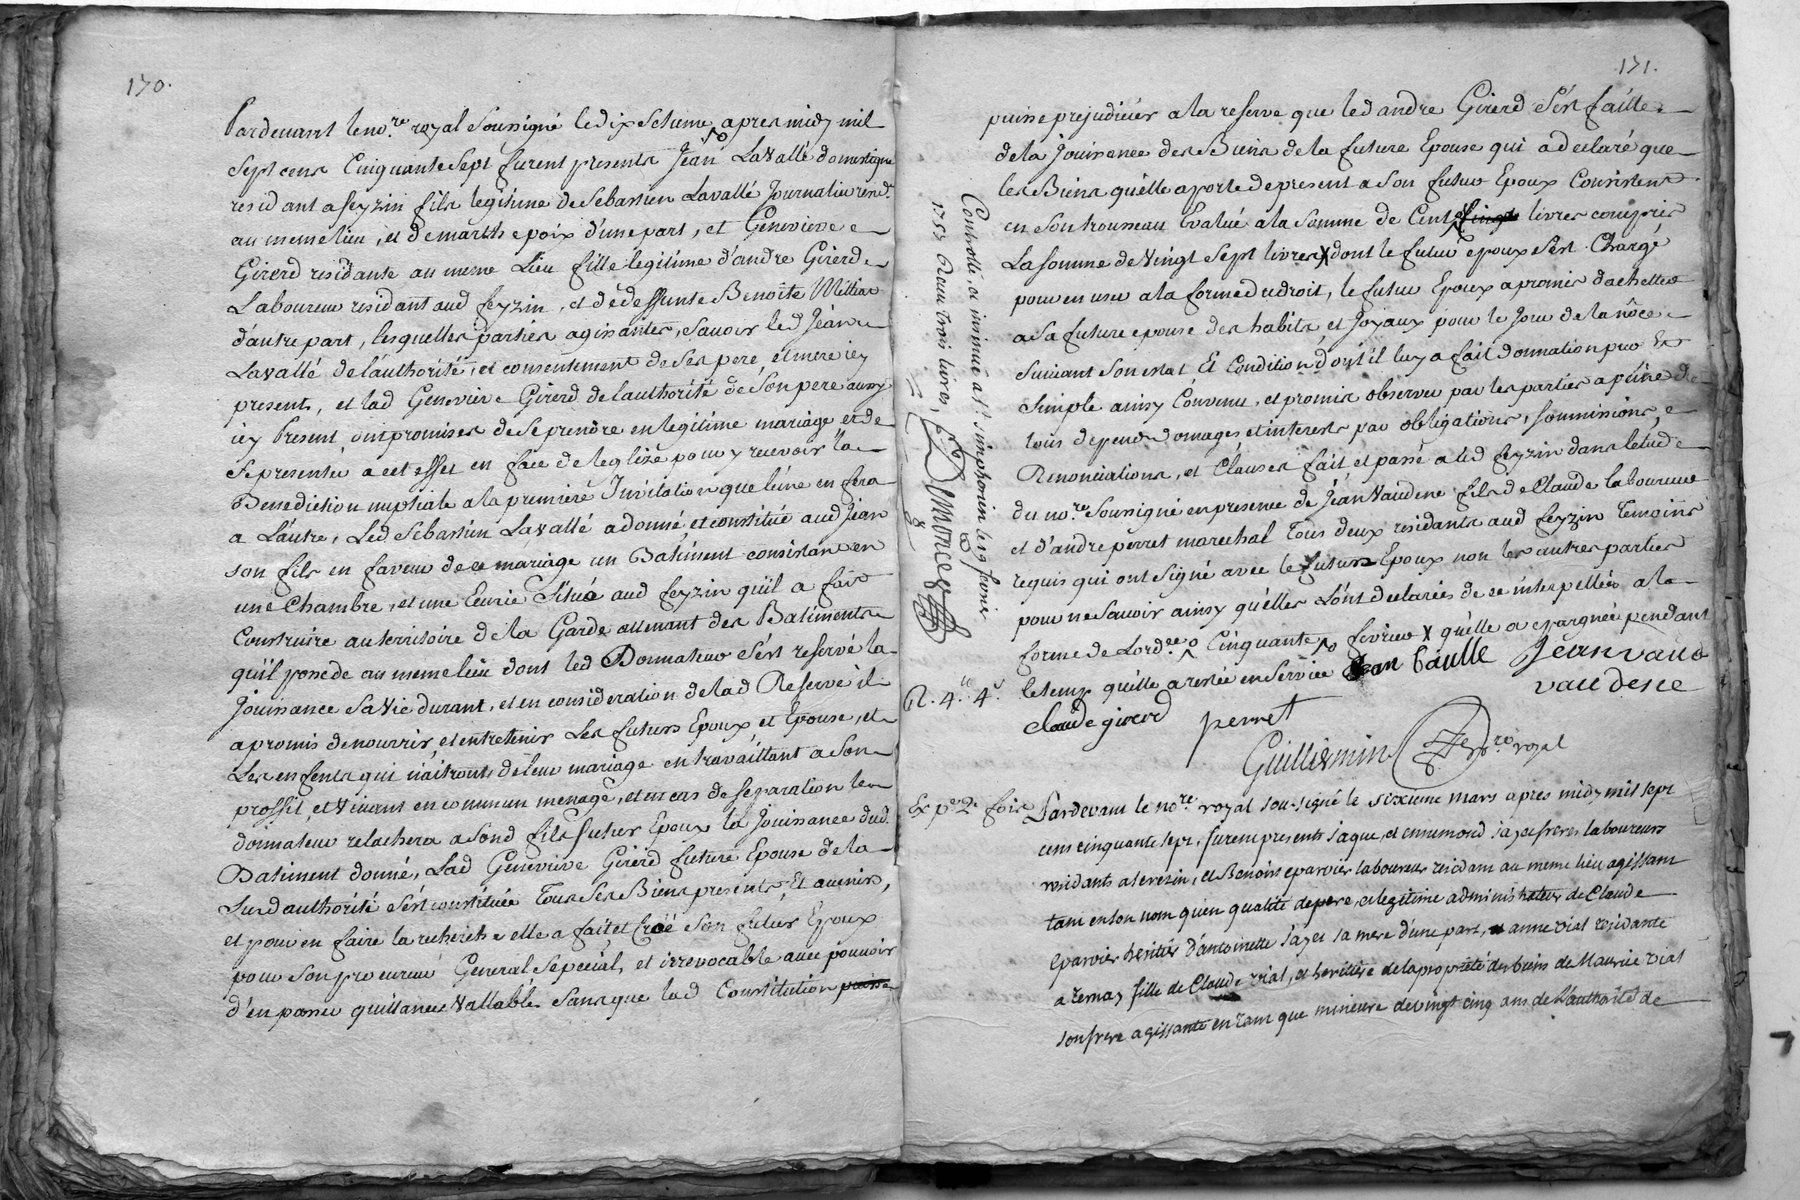 170.
Pardevant le no.re royal soussigné le dixseptieme apres midy mil
sept cens Cinquante sept furent presents Jean Lavallé domestique
residant a feyzin fils legitime de Sebastien Lavallé Journalier resid.t
au meme lieu, et de marthe poix d'une part, et Genevieve
Girerd residante au meme Lieu fille legitime d'andre Girerd
Laboureur residant aud feyzin, et de deffunte Benoite Milliat
d'autre part, lesquelles parties agissantes, savoir led Jean
Lavallé de l'authorité, et consentement de ses pere et mere icy
present, et lad Genevieve Girerd de l'authorité de son pere aussy
icy Present, ont promises de se prendre en legitime mariage et de
se presenter a cet effet en face de leglize pour y recevoir la
Benediction nuptiale a la premiere Invitation que l'une en fera
a L'autre, Led Sebastien Lavallé a donné, et constitué aud Jean
son fils en faveur de ce mariage un Batiment consistant en
une Chambre, et une Ecurie Situé aud feyzin qu'il a fait
Construire au territoire de la Garde attenant des Batiments
qu'il possede au meme lieu dont led Donnateur s'est reservé la
Jouissance sa vie durant, et en consideration de lad Reserve il
a promis de nourrir, et entretenir Les futurs Epoux, et Epouse, et
Les enfents qui naitront de leur mariage en travaillant a son
proffit, et vivant en commun menage, et en cas de separation le
donnateur relachera a sond fils futur Epoux la Jouissance dud
Batiment donné, Lad Genevieve Girerd future Epouse de la
Susd authorité s'est constituée Tous ses Biens presents Et avenirs,
et pour en faire la recherche elle a fait et Créé son futur Epoux
pour son procureur General Special, et irrevocable avec pouvoir
d'en passer quittance vallable Sans que lad Constitution puisse
171.
puisse prejudicier a la reserve que led andre Girerd s'est faitte
de la Jouissance des Biens de la future Epouse qui a declaré que
les Biens qu'elle apporte de present a son futur Epoux Consistent
en son trousseau Evalué a la somme de Cent vingt livres compris
La somme de vingt sept livres X dont le futur epoux s'est Chargé
pour en user a la forme du droit, le futur Epoux a promis d'achetter
a sa future epouse des habits, et Joyaux pour le Jour de la nôce
suivant son estat Et Condition dont il luy a fait donnation pur Et
simple ainsy Convenu, et promis observer par les parties a peine de
tous depens domages, et interests par obligations, soumissions, e
Renonciations, et Clauses fait et passé aud feyzin dans letude
du no.re soussigné en presence de Jean Vaudene fils de Claude laboureur
et d'andre perret marechal Tous deux residants aud feyzin Temoins
requis qui ont signé avec le futur Epoux non les autres parties
pour ne savoir ainsy qu'elles L'ont declarées de ce interpellées a la
forme de Lord.ce Cinquante fevrier X qu'elle a epargnée pendant
le temps qu'elle a restée en service Jean Laulle Jean vaud
vaudene
claude girerd perret
Guilliermin no.re royal
Controllé, et insinué a s.t simphorien le 19 fevrier
1757 Recu trois livres,
R. 4.ll 4.s
Ex p.r 2e fois
Pardevant le no.re royal soussigné le sixieme mars apres midy mil sept
cens cinquante sept, furent presents Jaque, et ennemond sayes freres laboureurs
residants a serezin, et Benoist eparvier laboureur residant au meme lieu agissant
tant en son nom qu'en qualité de pere, et legitime administrateur de Claude
eparvier heritier d'antoinette sayes sa mere d'une part, et anne vial residante
a ternay fille de Claude vial, et heritiere de la propriété des biens de Maurice vial
son frere agissante en tant que mineure de vingt cinq ans de l'authorité de